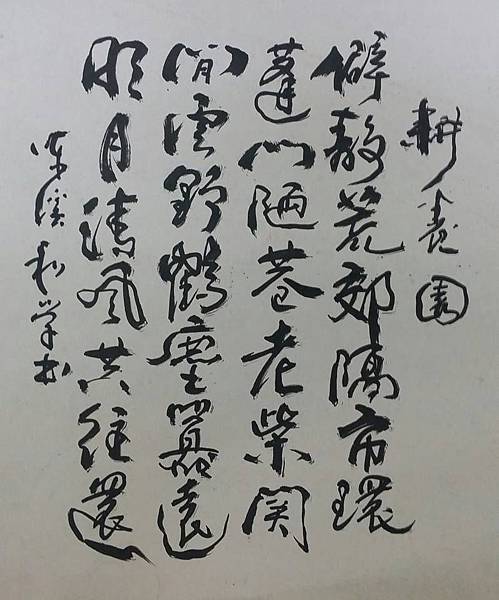 耕養園
僻靜荒郊隔市環
蓬門陋巷老柴関
閒雲野鶴塵囂遠
明月清風共往還
溪和學书